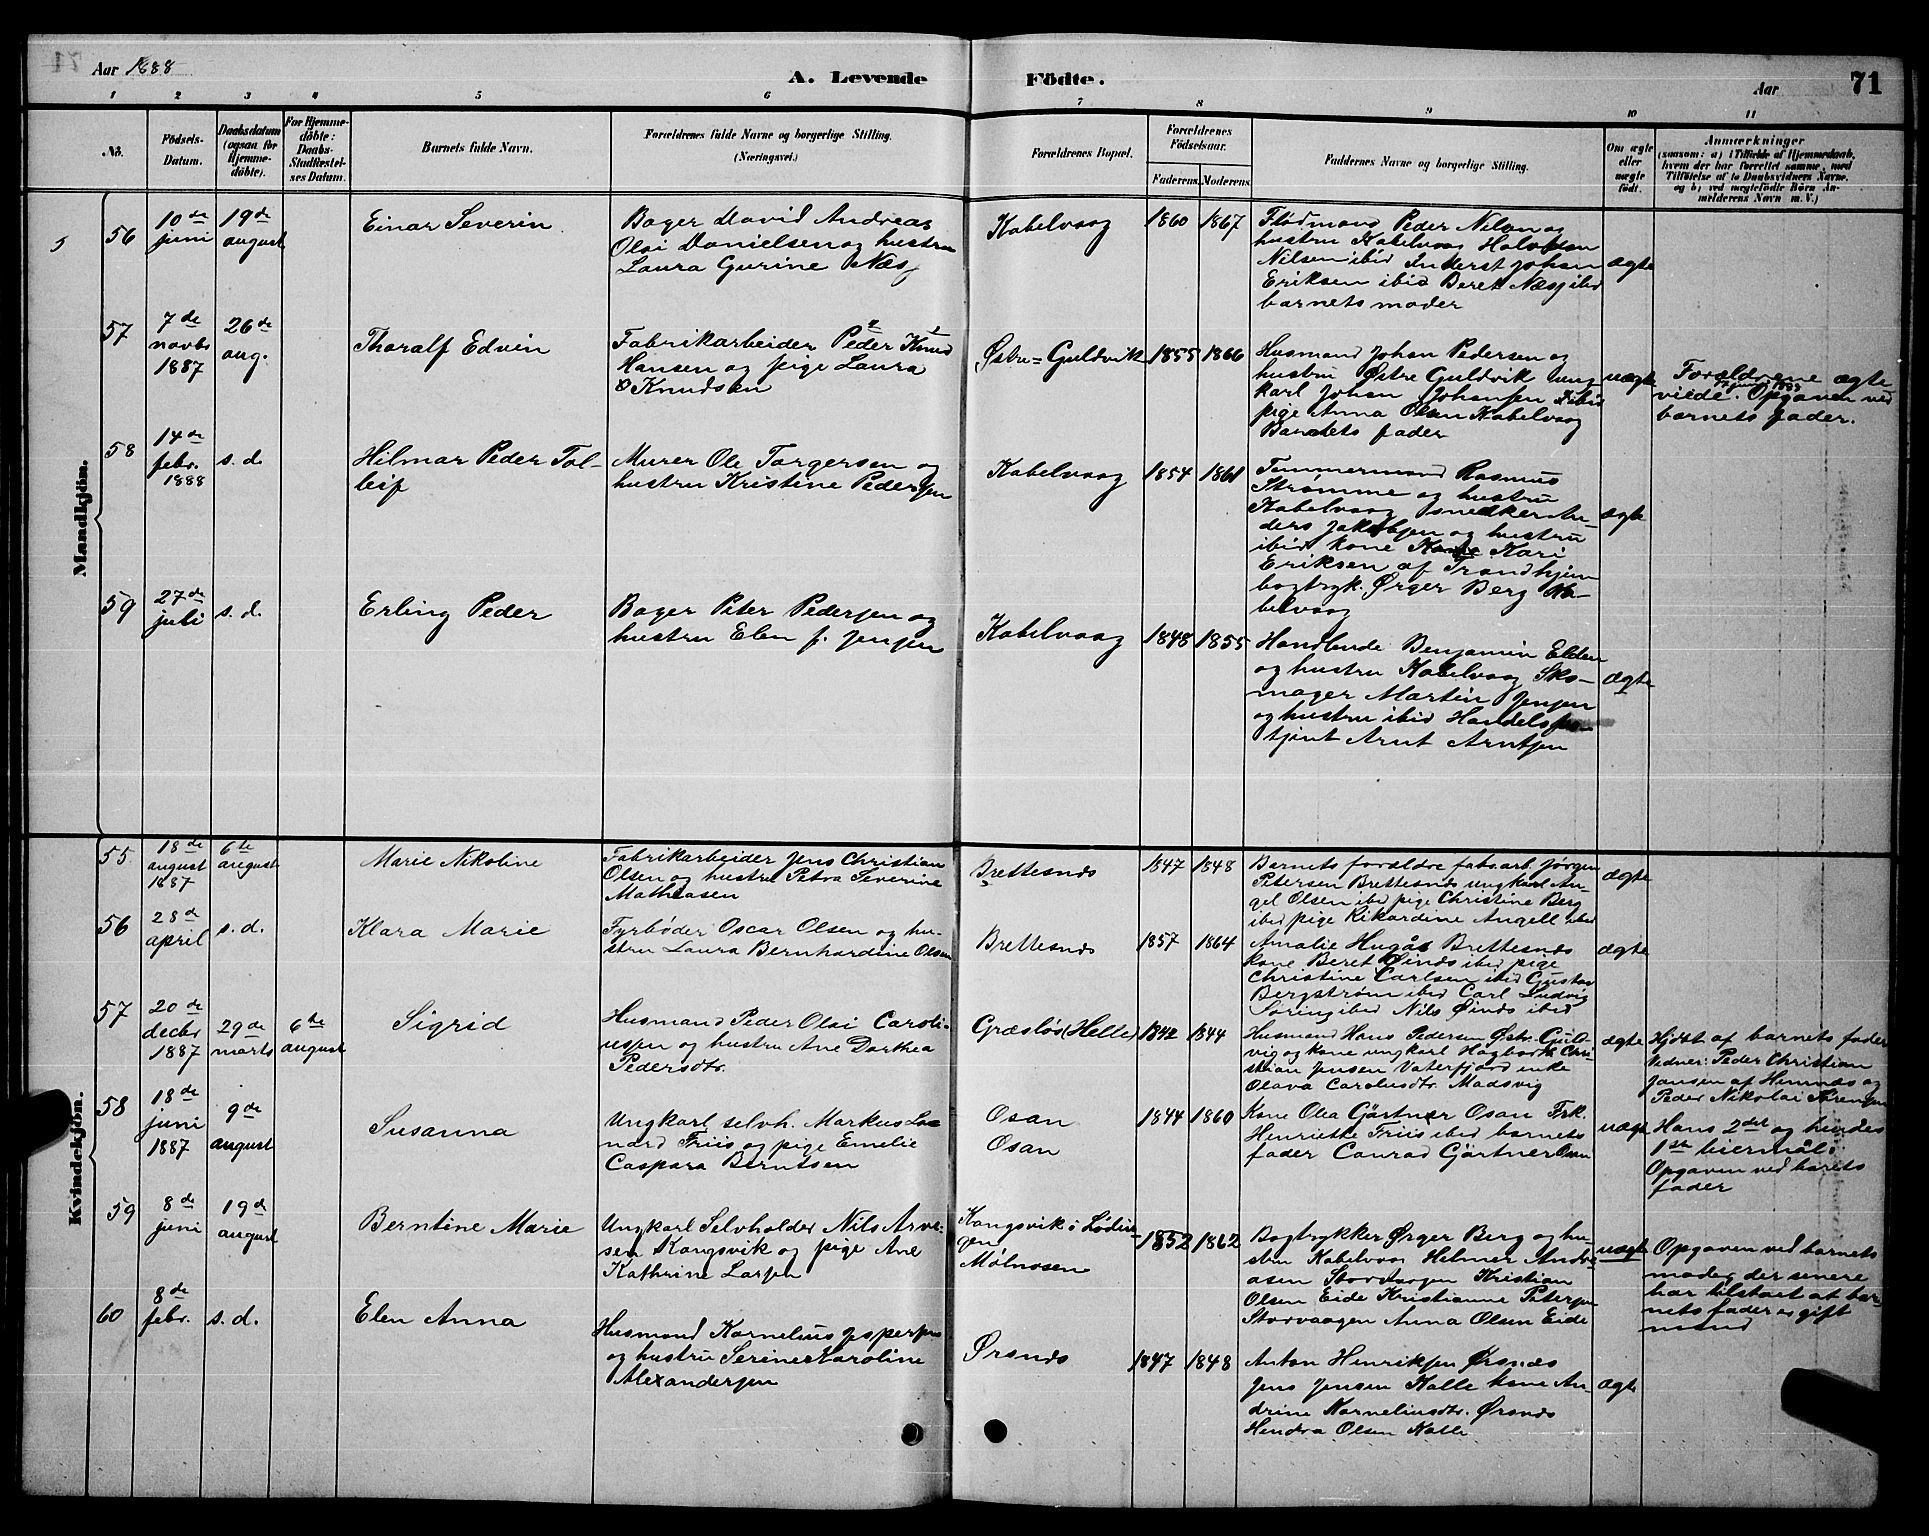 Aar 1888
A. Levende
Födte.
Aar
71
1 2 3 4 5 6 7 8 9 10 11
No.
Födsels-
Datum.
Daabsdatum
(ogsaa for
Hjemme-
döbte).
For Hjemme-
döbte:
Daabs-
Stadfæstel-
ses Datum.
Barnets fulde Navn.
Forældrenes fulde Navne og borgerlige Stilling.
(Næringsvei.)
Forældrenes Bopæl.
Forældrenes
Födselsaar.
Faderens. Moderens.
Faddernes Navne og borgerlige Stilling.
Om ægte
eller
uægte
födt.
Anmærkninger
(saasom: a) i Tilfælde af Hjemmedaab,
hvem der har forrettet samme, med
Tilföielse af to Daabsvidners Navne,
og b) ved uægtefödte Börn An-
melderens Navn m. V.)
Mandkjön.
5
56
10de
juni
19de
august
Einar Severin
Bager David Andreas
Olai Danielsen og hustru
Laura Gurine Næs
Kabelvaag
1860 1867
Peder Nilsen og
hustru Kabelvaag
Nilsen ibid Johan
Eriksen ibid Beret Næss ibid
barnets moder
ægte
57
7de
novbr
1887
26de
aug.
Tharalf Edvin
Fabrikarbeider Peder Knud
Hansen og pige Laura
Knudsen
Østre=Guldvik
1855 1866
Husmand Johan Pedersen og
hustru Østre Guldvik ung-
karl Johan Johansen ibid
pige Anna Olsen Kabelvaag
Barnets fader
uægte
Forældrene ægte
viede. Opgaven ved
barnets fader.
58
14de
febr.
1888
s. d.
Hilmar Peder Tol-
leif
Murer Ole Torgersen og
hustru Kristine Pedersen
Kabelvaag
1854 1861
Tømmermand Rasmus
Strømme og hustru
Kabelvaag snedker An-
ders Jakobsen og hustru
ibid kone Kari
Eriksen af Trondhjem
bogtryk. Ørger Berg Ka-
belvaag
ægte
59
27de
juli
s. d.
Erling Peder
Bager Peter Pedersen og
hustru Elen f. Jensen
Kabelvaag
1848 1855
Handlende Benjamin Elden
og hustru Kabelvaag Sko-
mager Martin Jensen
og hustru ibid Handels
tjent Arnt Arntsen
ægte
Kvindekjön.
55
18de
august
1887
6te
august
Marie Nikoline
Fabrikarbeider Jens Christian
Olsen og hustru Petra Severine
Mathiasen
Brettesnæs
1847 1848
Barnets forældre fabr.arb. Jørgen
Petersen Brettesnæs ungkarl An-
gel Olsen ibid pige Christine Berg
ibid pige Rikardine Angell ibid
ægte
56
28de
april
s. d.
Klara Marie
Fyrbøder Oscar Olsen og hu-
stru Laura Bernhardine Olsen
Brettesnæs
1857 1864
Amalie Hugås Brettesnæs
kone Beret Øinæs ibid pige
Christine Carlsen ibid Gustav
Bergstrøm ibid Carl Ludvig
Søring ibid Nils Øinæs ibid
ægte
57
20de
decbr
1887
29de
marts
6te
august
Sigrid
Husmand Peder Olai Caroli-
ussen og hustru Ane Dorthea
Pedersdtr.
Græsløs (Helle)
1842 1844
Husmand Hans Pedersen Østr. Guld-
vig og kone ungkarl Hagbart Chri-
stian Jensen Vaterfjord enke
Olava Carolusdtr. Madsvig
ægte
Hjdøt af barnets fader
Vidner: Peder Christian
Jansen af Hemnæs og
Peder Nikolai Sørensen
58
18de
juni
1887
9de
august
Susanna
Ungkarl selvh. Markus Leo-
nard Friis og pige Emelie
Caspara Berntsen
Osan
Osan
1844 1860
Kone Olea Gärtner Osan Frk.
Henriette Friis ibid barnets
fader Conrad Gärtner Osan
uægte
Hans 2det og hendes
1ste leiermål.
Opgaven ved barnets
fader
59
8de
juni
19de
august
Berntine Marie
Ungkarl Selvholder Nils Arne-
sen Kongsvik og pige Ane
Kathrine Larsen
Kongsvik i Lødin-
gen
Mølnosen
1852 1862
Bogtrykker Ørger Berg og hu-
stru Kabelvaag Helmer Andre-
asen Storvaagen Kristian
Olsen Eide Kristianne Petersen
Storvaagen Anna Olsen Eide
uægte
Opgaven ved barnets
moder, der senere
har tilstaat at bar-
nets fader er gift
mand
60
8de
febr.
s. d.
Elen Anna
Husmand Kornelius Jespersen
og hustru Serine Karoline
Alexandersen
Ørsnæs
1847 1848
Anton Henriksen Ørsnæs
Jens Jensen Kalle kone An-
drine Korneliusdtr. Ørsnæs
Hendra Olsen Kalle
ægte